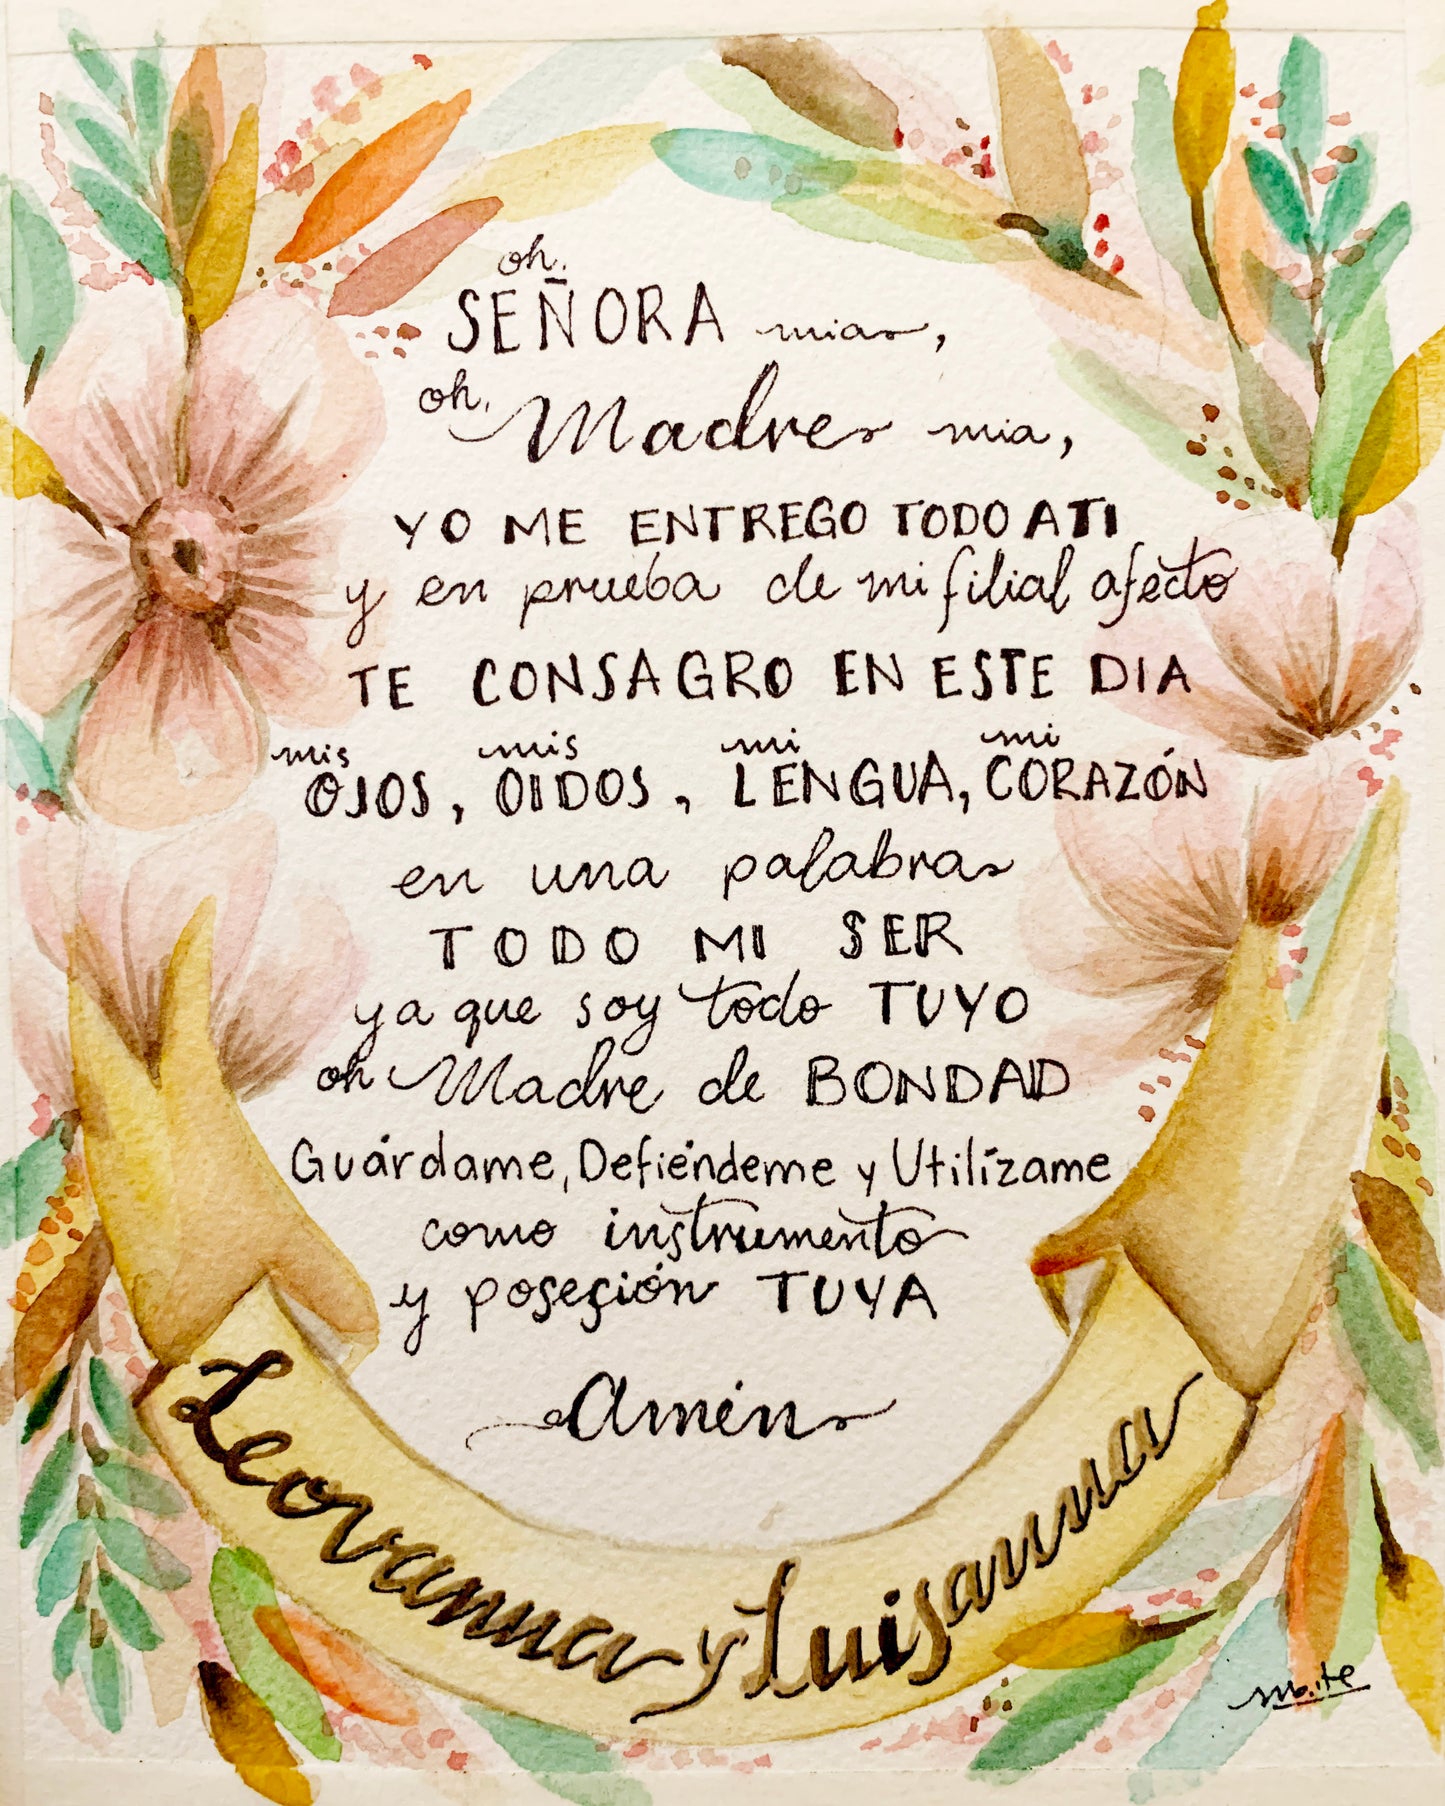 oh.
SEÑORA mia,
oh. Madre mia,
YO ME ENTREGO TODO A TI
y en prueba de mi filial afecto
TE CONSAGRO EN ESTE DIA
mis mis mi mi
OJOS, OIDOS, LENGUA, CORAZÓN
en una palabra
TODO MI SER
ya que soy todo TUYO
oh Madre de BONDAD
Guárdame, Defiéndeme y Utilízame
como instrumento
y posesión TUYA
Amén
Leovanna y Luisanna